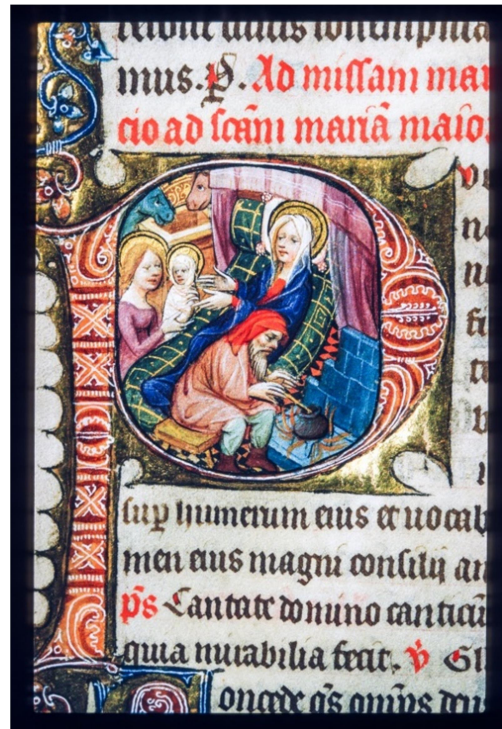 mus. P. Ad missam mai
cio ad scām mariā maio
sup humerum eius et uocab
men eius magni consilij an
ps Cantate domino canticū
quia mirabilia fecit. v̄ Gl
oncede qs omps deus